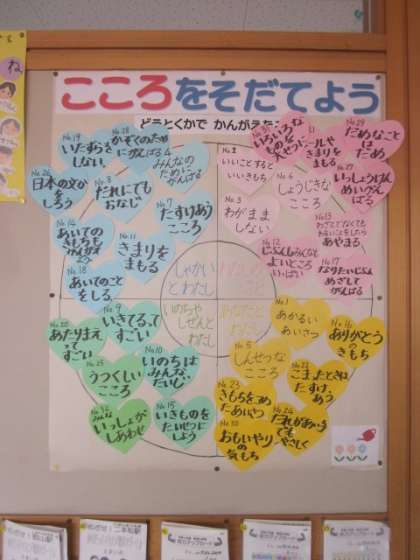 こころをそだてよう
どうとくかで かんがえたこと
No.19
いたずらを
しない
No.28
かぞくのため
にがんばる
No.4
みんなの
ために
がんばる
No.26
日本の文か
しろう
No.8
だれにでも
おなじ
No.7
たすけあう
こころ
No.14
あいての
きもちを
No.11
きまりを
まもる
No.18
あいてのこと
をしる
No.2
いいことすると
いいきもち
いろいろな
きまりを
まもる
No.29
だめなこと
は
だめ
No.6
しょうじきな
こころ
No.27
いっしょうけん
めいがん
ばる
No.3
わがまま
しない
No.13
わざとでなくても
わるいことをしたら
あやまる
No.12
じぶんもみんなも
よいところ
いっぱい
No.17
なりたいじぶん
めざして
がんばる
しゃかい
とわたし
わたしの
こと
いのちや
しぜんと
わたし
あなたと
わたし
あたりまえ
って
すごい
No.9
いきてるって
すごい
No.25
うつくしい
こころ
No.10
いのちは
みんな
だいじ
いっしょが
しあわせ
No.15
いきものを
たいせつに
しよう
No.1
あかるい
あいさつ
No.16
ありがとう
の
きもち
No.5
しんせつな
こころ
こまったときは
たすけ
あう
No.23
きもちをこめ
たあいさつ
No.24
だれがあいて
でも
やさしく
おもいやり
の気もち
ね